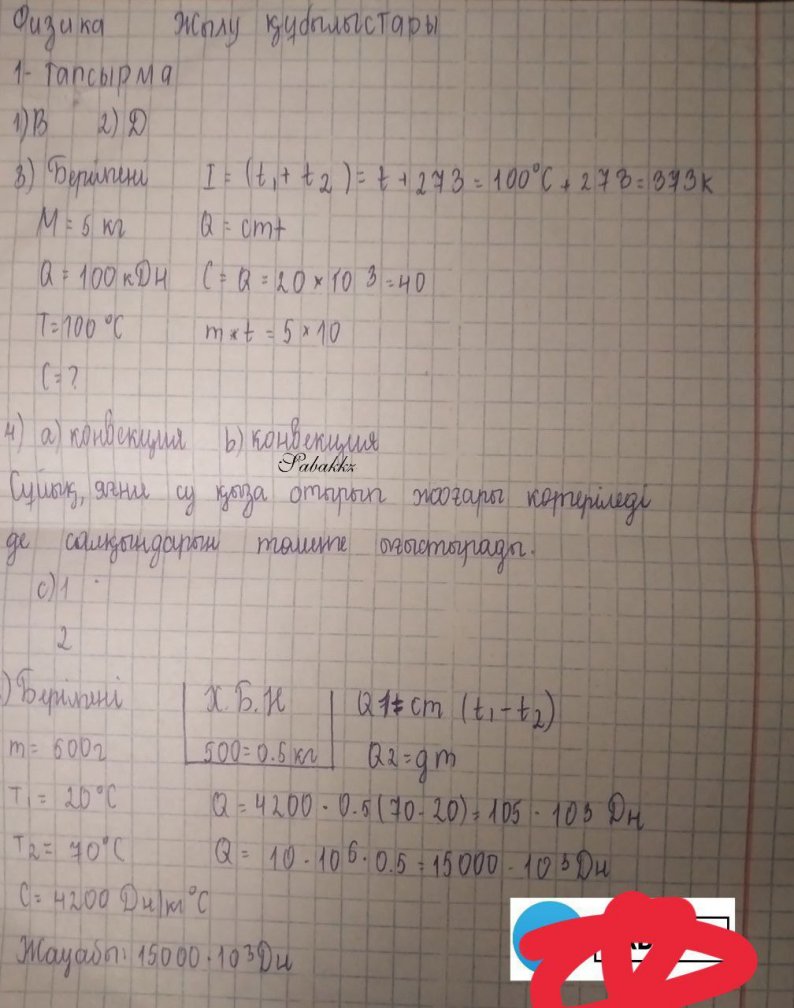 Физика Жылу құбылыстары
1- тапсырма
1) В 2) Д
3) Берілгені I = (t₁ + t₂) = t + 273 = 100°C + 273 = 373к
M = 5 кг Q = cmt
Q = 100 кДн C = Q = 20 × 10 3 = 40
T = 100°C m × t = 5 × 10
C = ?
4) a) конвекция b) конвекция
Sabakkz
Сұйық, яғни су қыза отырып жоғары көтеріледі
де салқындарын төменге ығыстырады.
c) 1
2
) Берілгені Х.Б.Н Q1 = cm (t₁ - t₂)
m = 500г 500 = 0.5 кг Q2 = gm
T₁ = 20°C Q = 4200 · 0.5 (70 - 20) = 105 · 10³ Дн
T₂ = 70°C Q = 10 · 10⁶ · 0.5 = 15000 · 10³ Дн
C = 4200 Дн/кг°C
Жауабы: 15000 · 10³ Дн